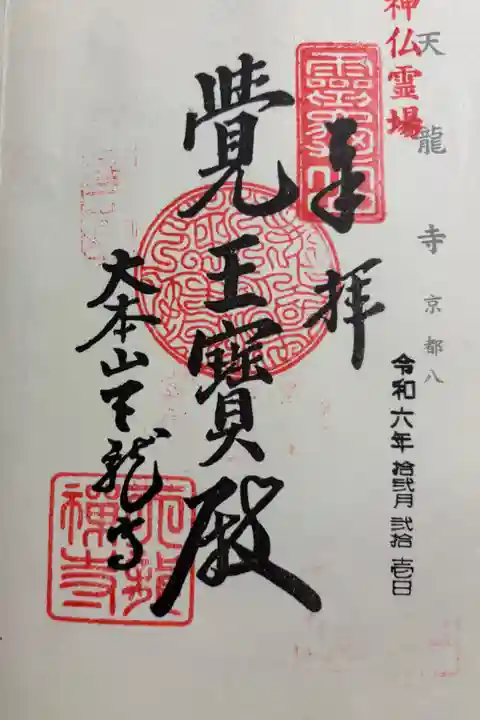 神仏霊場
天龍寺 京都八
令和六年 拾弐月 弐拾壱日
奉拝
覺王寶殿
大本山天龍寺
天龍禅寺